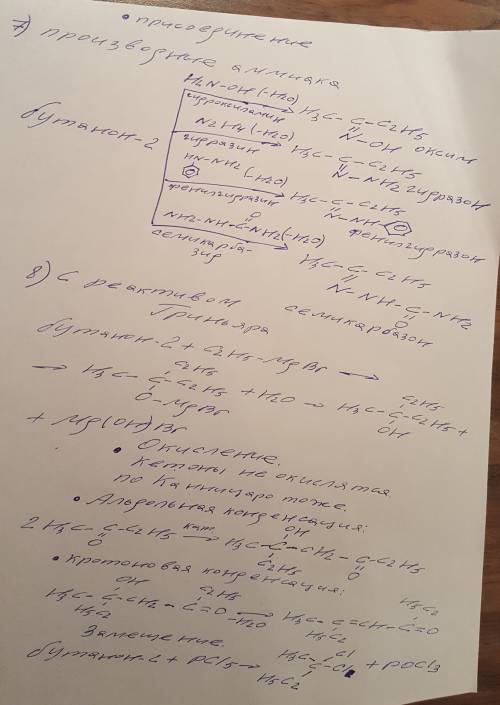 • присоединение
7) производние аммиака
бутанон-2
H2N-OH (-H2O)
гидроксиламин
H3C-C-C2H5
N-OH оксим
N2H4 (-H2O)
гидразин
H3C-C-C2H5
N-NH2 гидразон
HN-NH2 (-H2O)
фенилгидразин
H3C-C-C2H5
N-NH
фенилгидразон
O
NH2-NH-C-NH2 (-H2O)
семикарба-
зид
H3C-C-C2H5
N-NH-C-NH2
O
семикарбазон
8) с реактивом
Гриньяра
бутанон-2 + C2H5-MgBr →
C2H5
→ H3C-C-C2H5 + H2O →
O-MgBr
C2H5
H3C-C-C2H5 +
OH
+ Mg(OH)Br
• Окисление.
кетоны не окислятся
по Канницаро тоже.
• Альдольная конденсация:
2 H3C-C-C2H5 кат. →
O
OH
H3C-C-CH2-C-C2H5
C2H5 O
• кротоновая конденсация:
OH C2H5
H3C-C-CH2-C=O → -H2O
H5C2
H5C2
H3C-C=CH-C=O
H5C2
Замещение.
бутанон-2 + PCl5 →
Cl
H3C-C-Cl + POCl3
H5C2